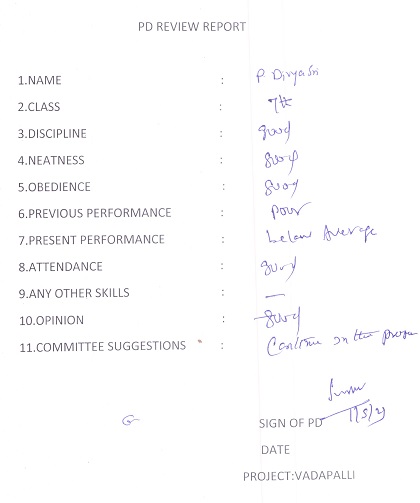 PD REVIEW REPORT
1.NAME : P Divyasri
2.CLASS : 7th
3.DISCIPLINE : good
4.NEATNESS : good
5.OBEDIENCE : good
6.PREVIOUS PERFORMANCE : poor
7.PRESENT PERFORMANCE : below Average
8.ATTENDANCE : good
9.ANY OTHER SKILLS : —
10.OPINION : good
11.COMMITTEE SUGGESTIONS : Continue in the
SIGN OF PD
DATE
PROJECT:VADAPALLI